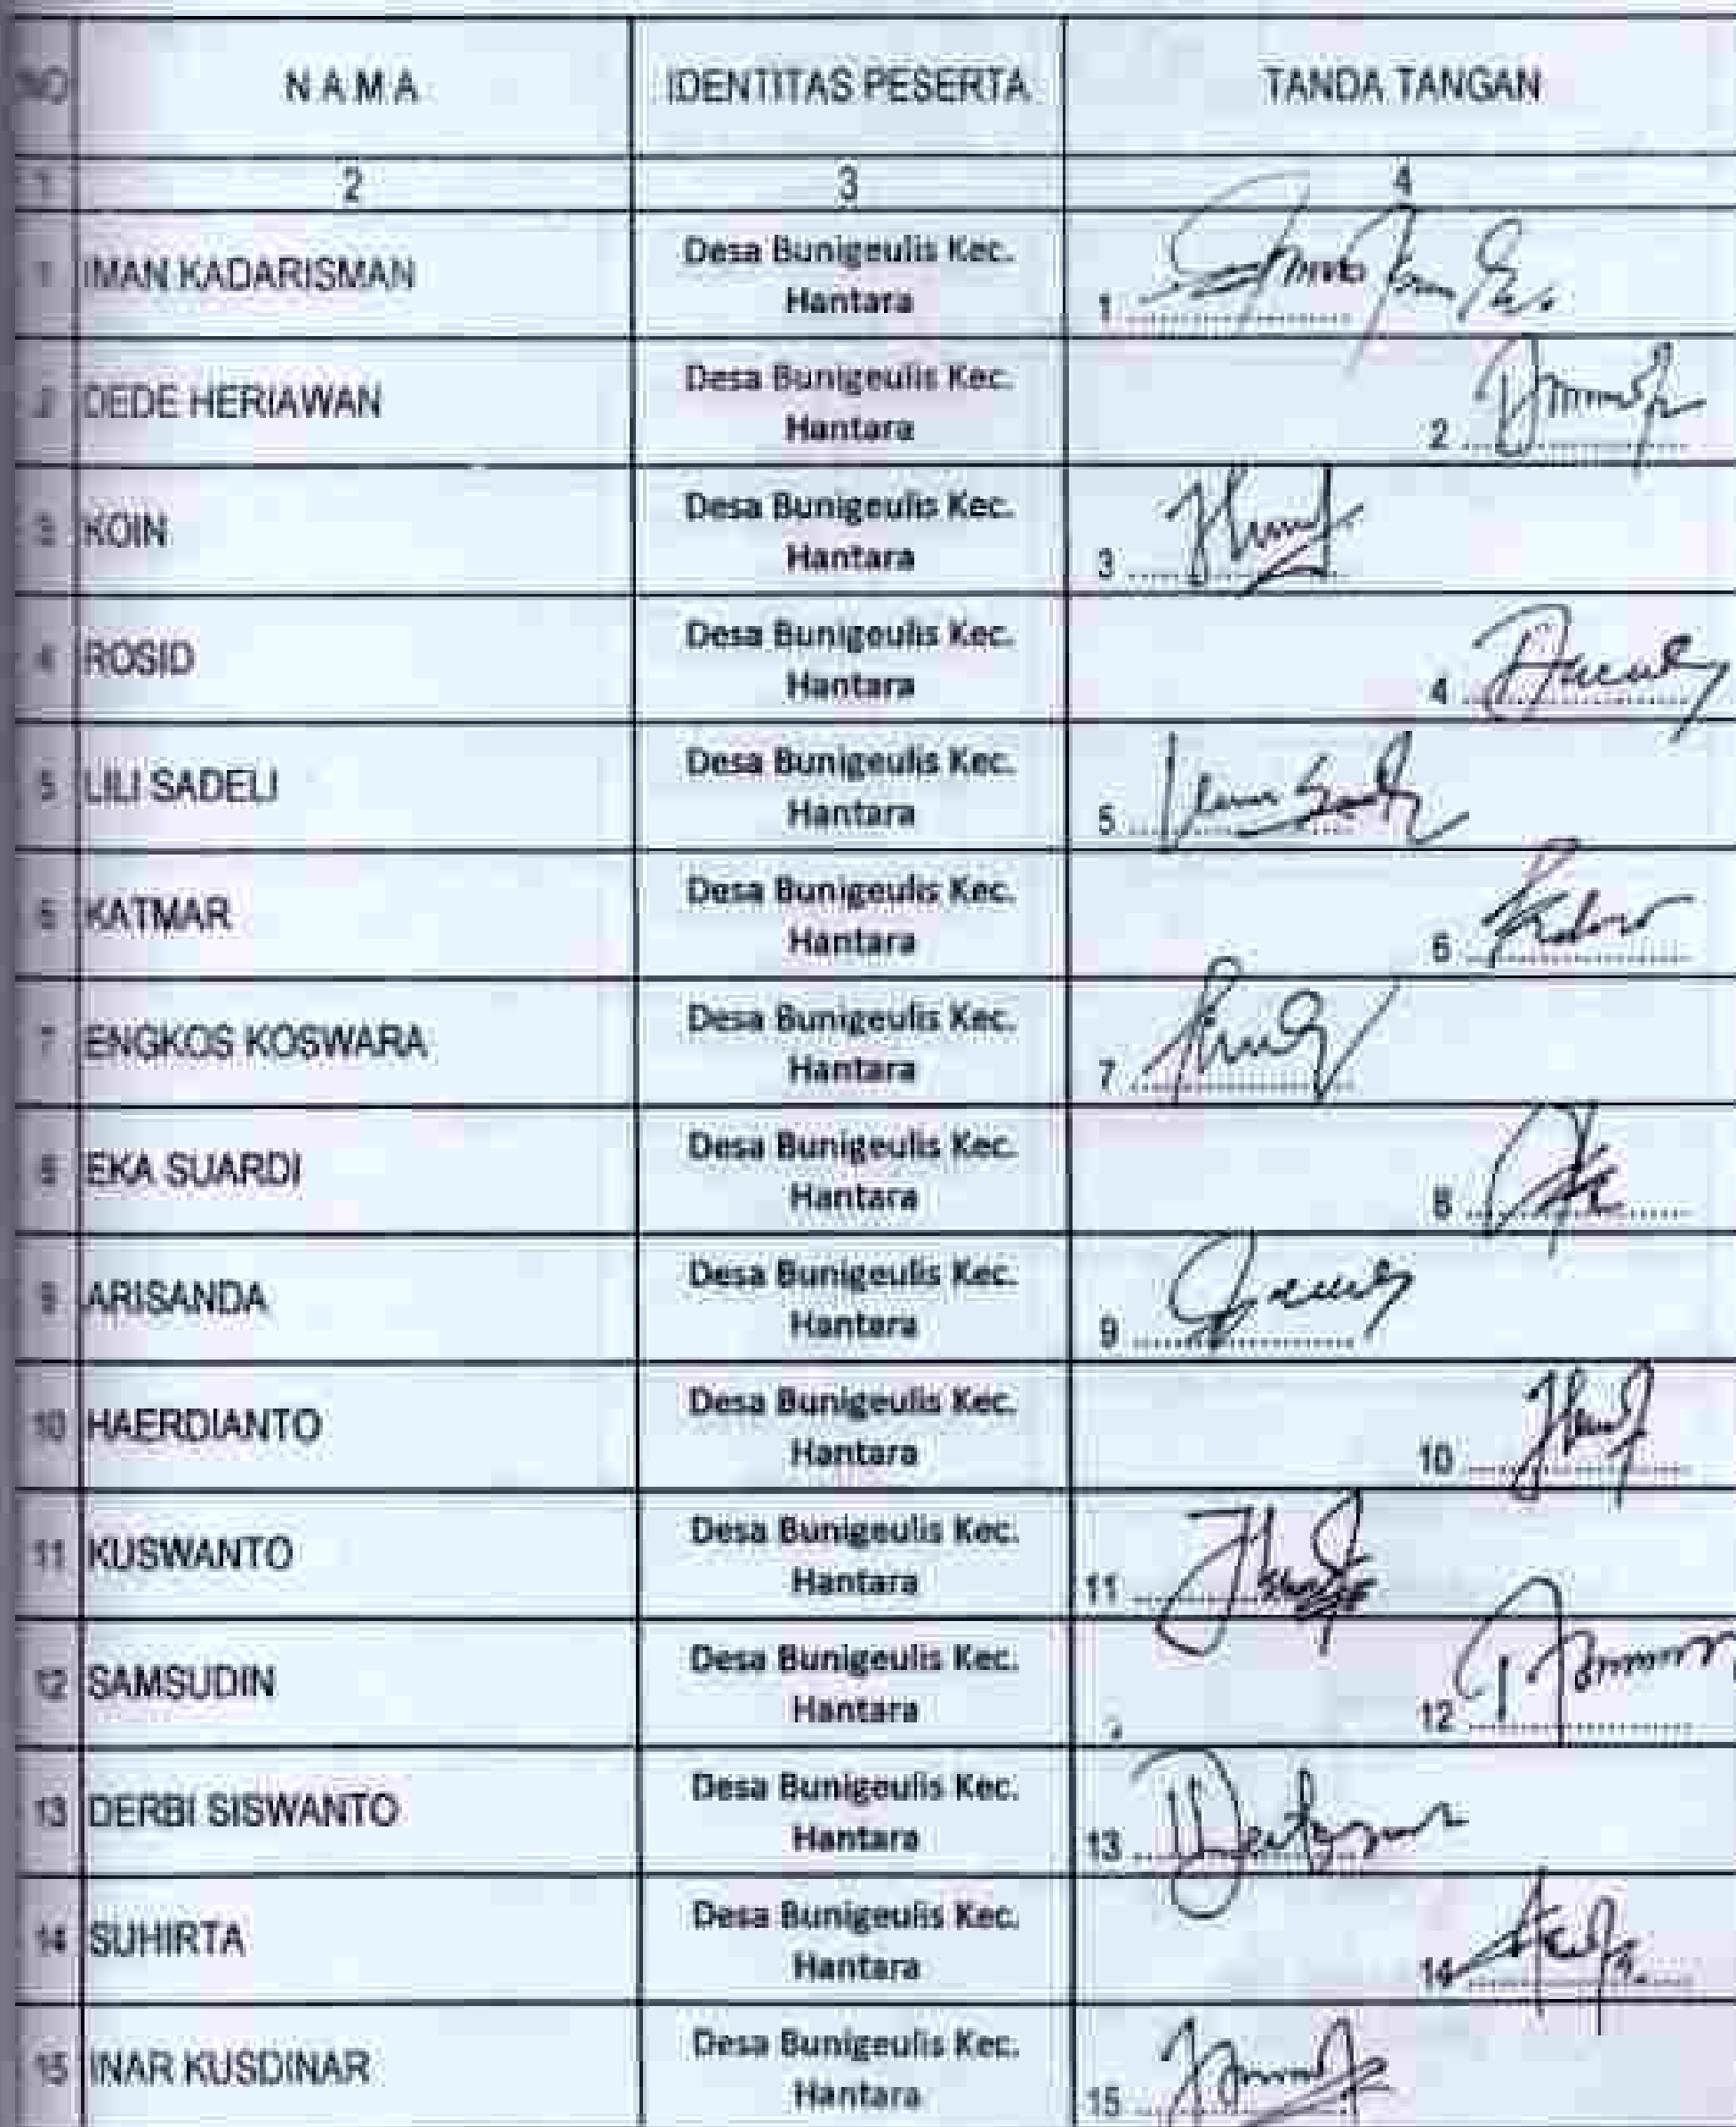 NO NAMA IDENTITAS PESERTA TANDA TANGAN
1 2 3 4
1 IMAN KADARISMAN Desa Bunigeulis Kec.
Hantara 1
2 DEDE HERIAWAN Desa Bunigeulis Kec.
Hantara 2
3 KOIN Desa Bunigeulis Kec.
Hantara 3
4 ROSID Desa Bunigeulis Kec.
Hantara 4
5 LILI SADELI Desa Bunigeulis Kec.
Hantara 5
6 KATMAR Desa Bunigeulis Kec.
Hantara 6
7 ENGKOS KOSWARA Desa Bunigeulis Kec.
Hantara 7
8 EKA SUARDI Desa Bunigeulis Kec.
Hantara 8
9 ARISANDA Desa Bunigeulis Kec.
Hantara 9
10 HAERDIANTO Desa Bunigeulis Kec.
Hantara 10
11 KUSWANTO Desa Bunigeulis Kec.
Hantara 11
12 SAMSUDIN Desa Bunigeulis Kec.
Hantara 12
13 DERBI SISWANTO Desa Bunigeulis Kec.
Hantara 13
14 SUHIRTA Desa Bunigeulis Kec.
Hantara 14
15 INAR KUSDINAR Desa Bunigeulis Kec.
Hantara 15